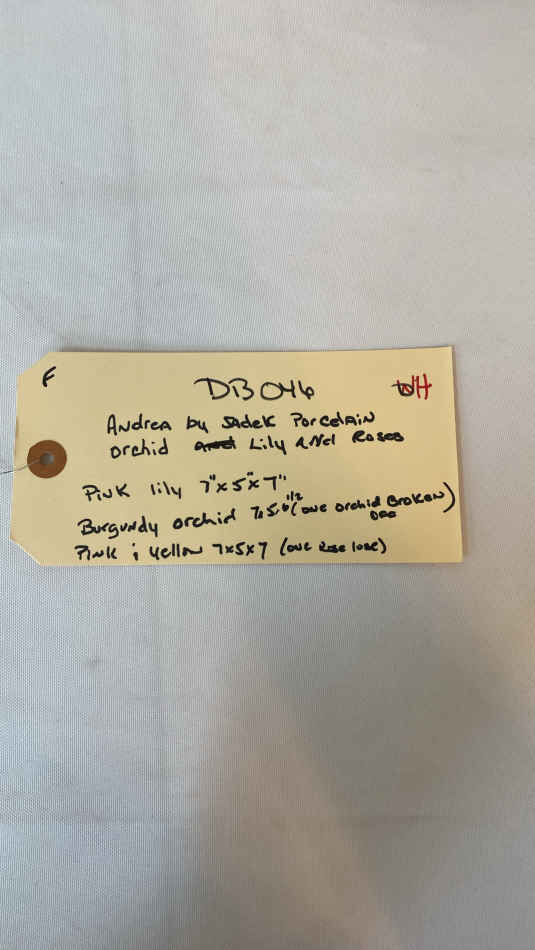 F
DB046
WH
Andrea by Sadek Porcelain
orchid And Lily and Roses
Pink lily 7"x5"x7"
Burgundy orchid 7x5x6 1/2 (one orchid Broken off)
Pink & yellow 7x5x7 (one Rose lose)